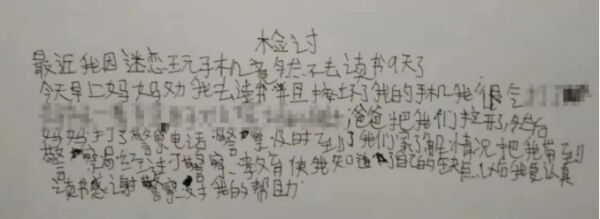 检讨
最近我因迷恋玩手机竟然不去读书9天了
今天早上妈妈劝我去读书并且摔坏了我的手机我很气
爸爸把我们拉开了然后
妈妈打了警察电话警察及时到了我们家了解情况把我带到
警察局经过了警察教育使我知道了自己的缺点以后我要认真
读书感谢警察叔叔我的帮助